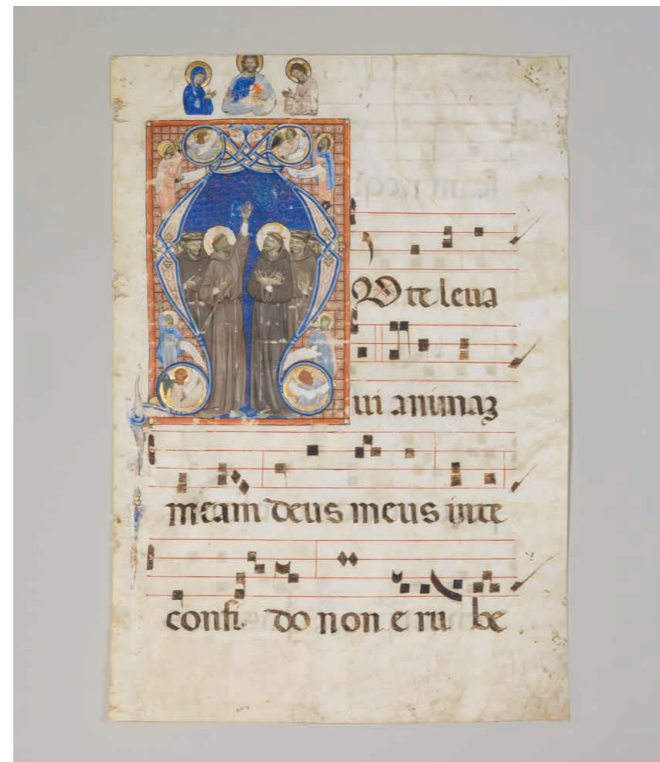 D te leua
ui animaʒ
meam deus meus in te
confi do non e ru be